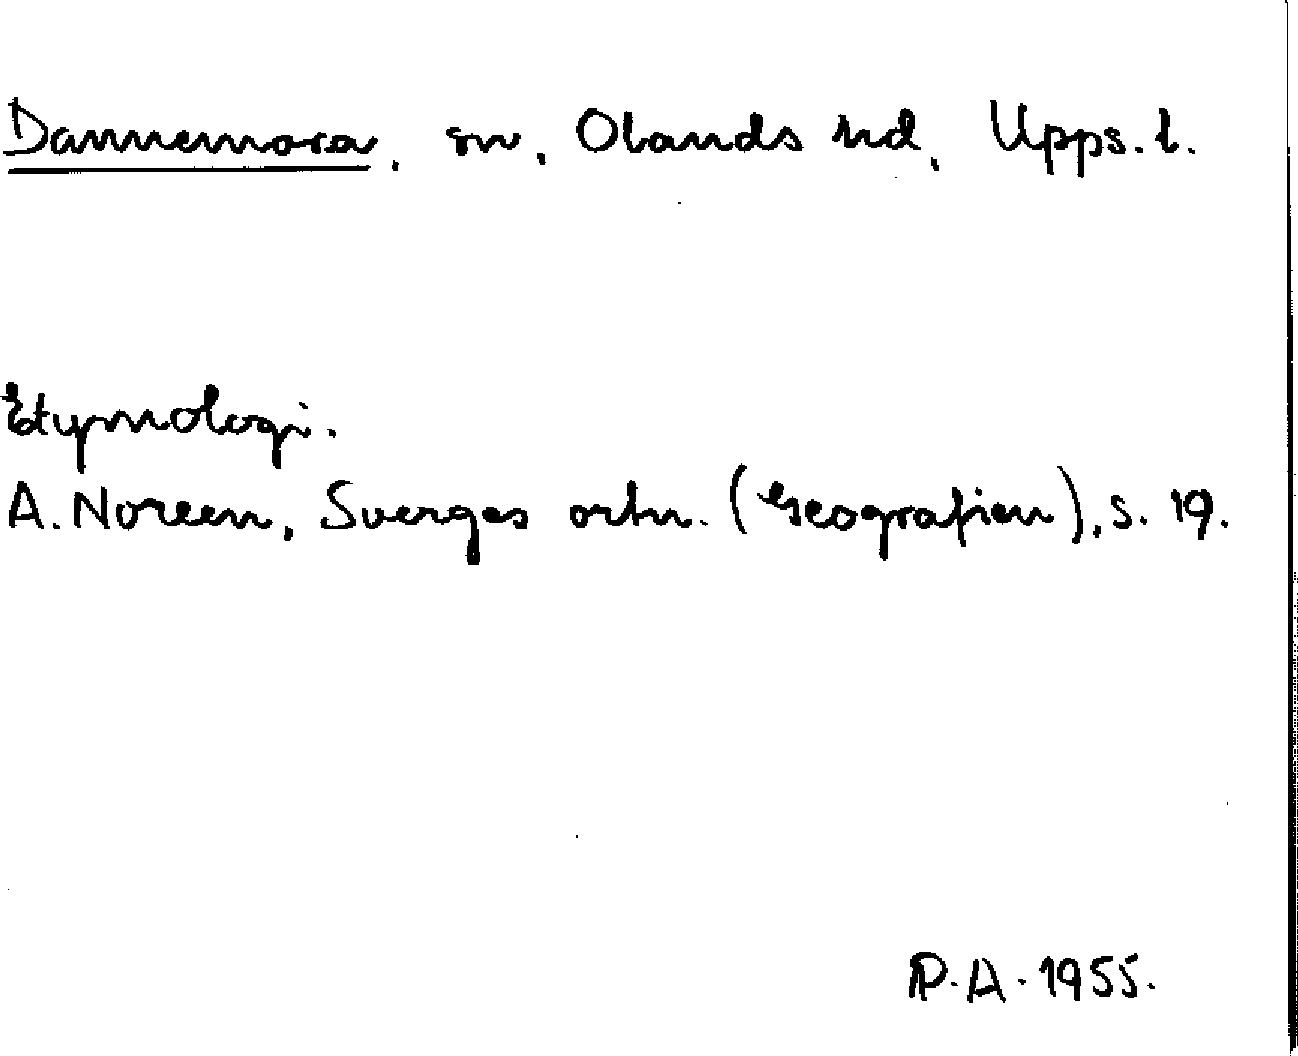 Dannemora, sn, Olands hd, Upps. l.
Etymologi.
A. Noreen, Sverges ortn. (Geografien), s. 19.
P.A. 1955.